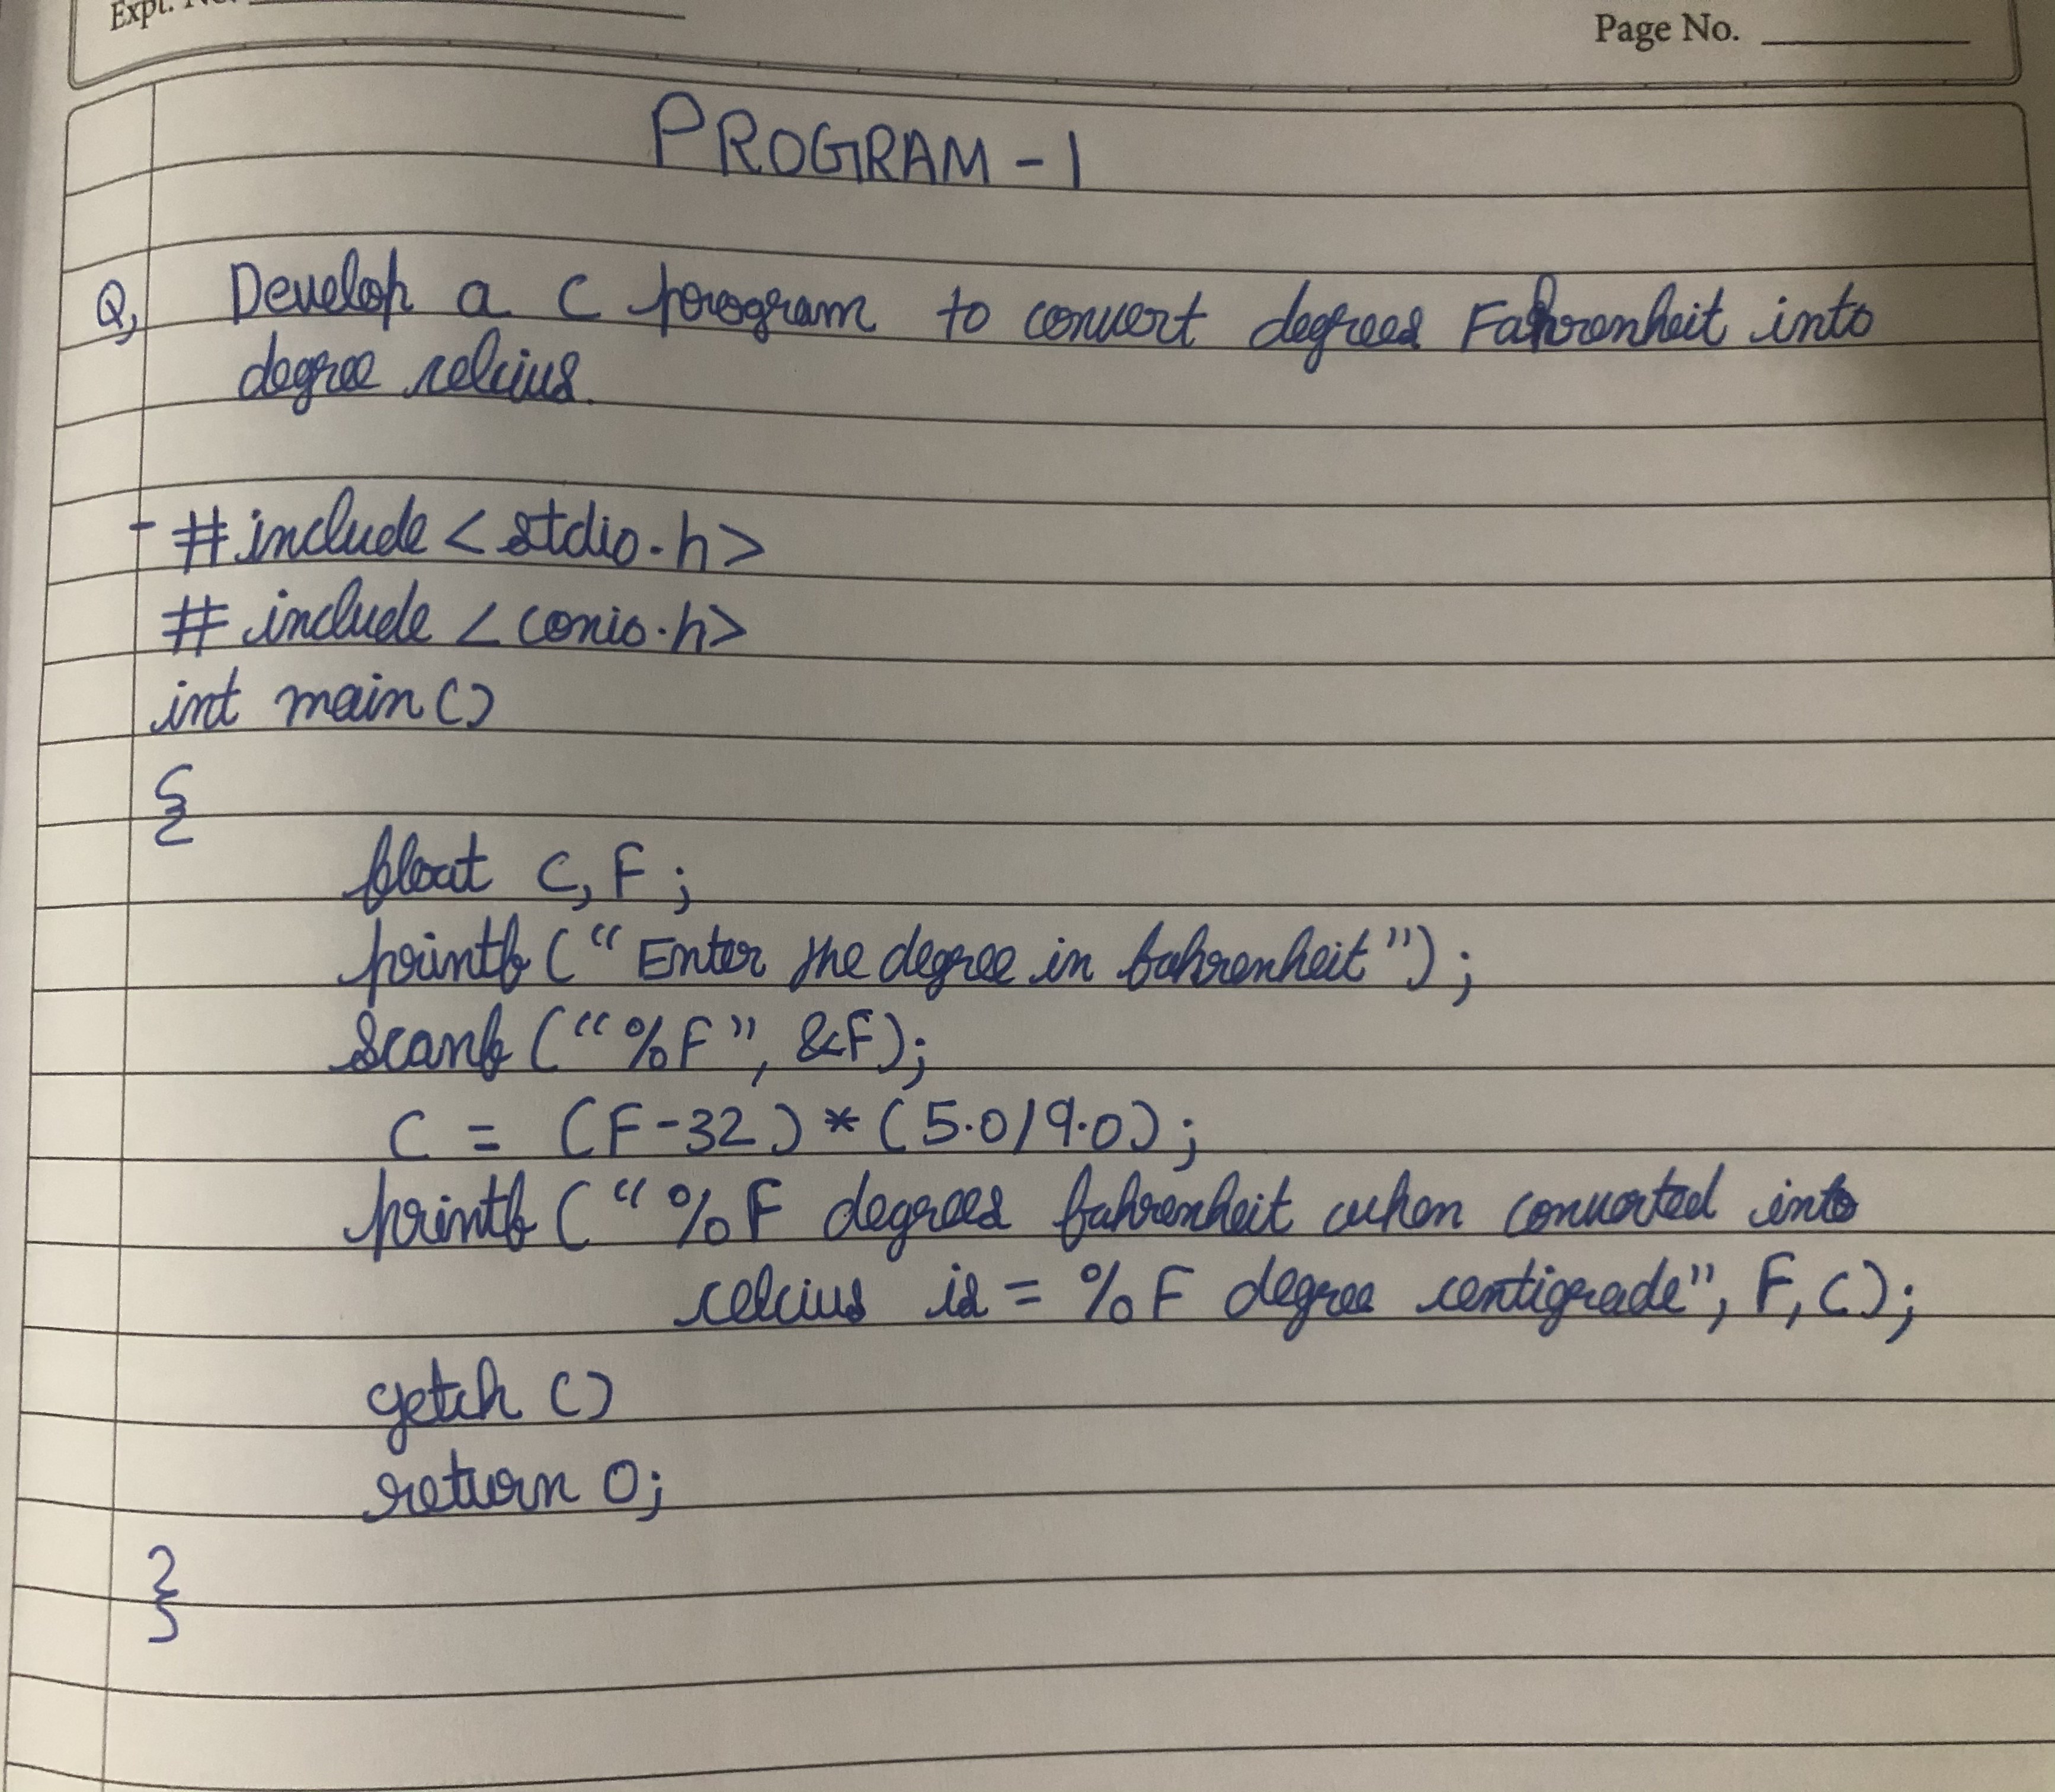 Expt. No.
Page No.
PROGRAM - 1
Q, Develop a C program to convert degrees Fahrenheit into
degree celcius.
- #include < stdio.h>
# include < conio.h>
int main ()
{
float C, F ;
printf (“ Enter the degree in fahrenheit”) ;
Scanf (“ %F”, &F);
C = (F-32) * (5.0/9.0) ;
printf (“ %F degrees fahrenheit when converted into
celcius is = %F degree centigrade”, F, C);
getch ()
return 0;
}